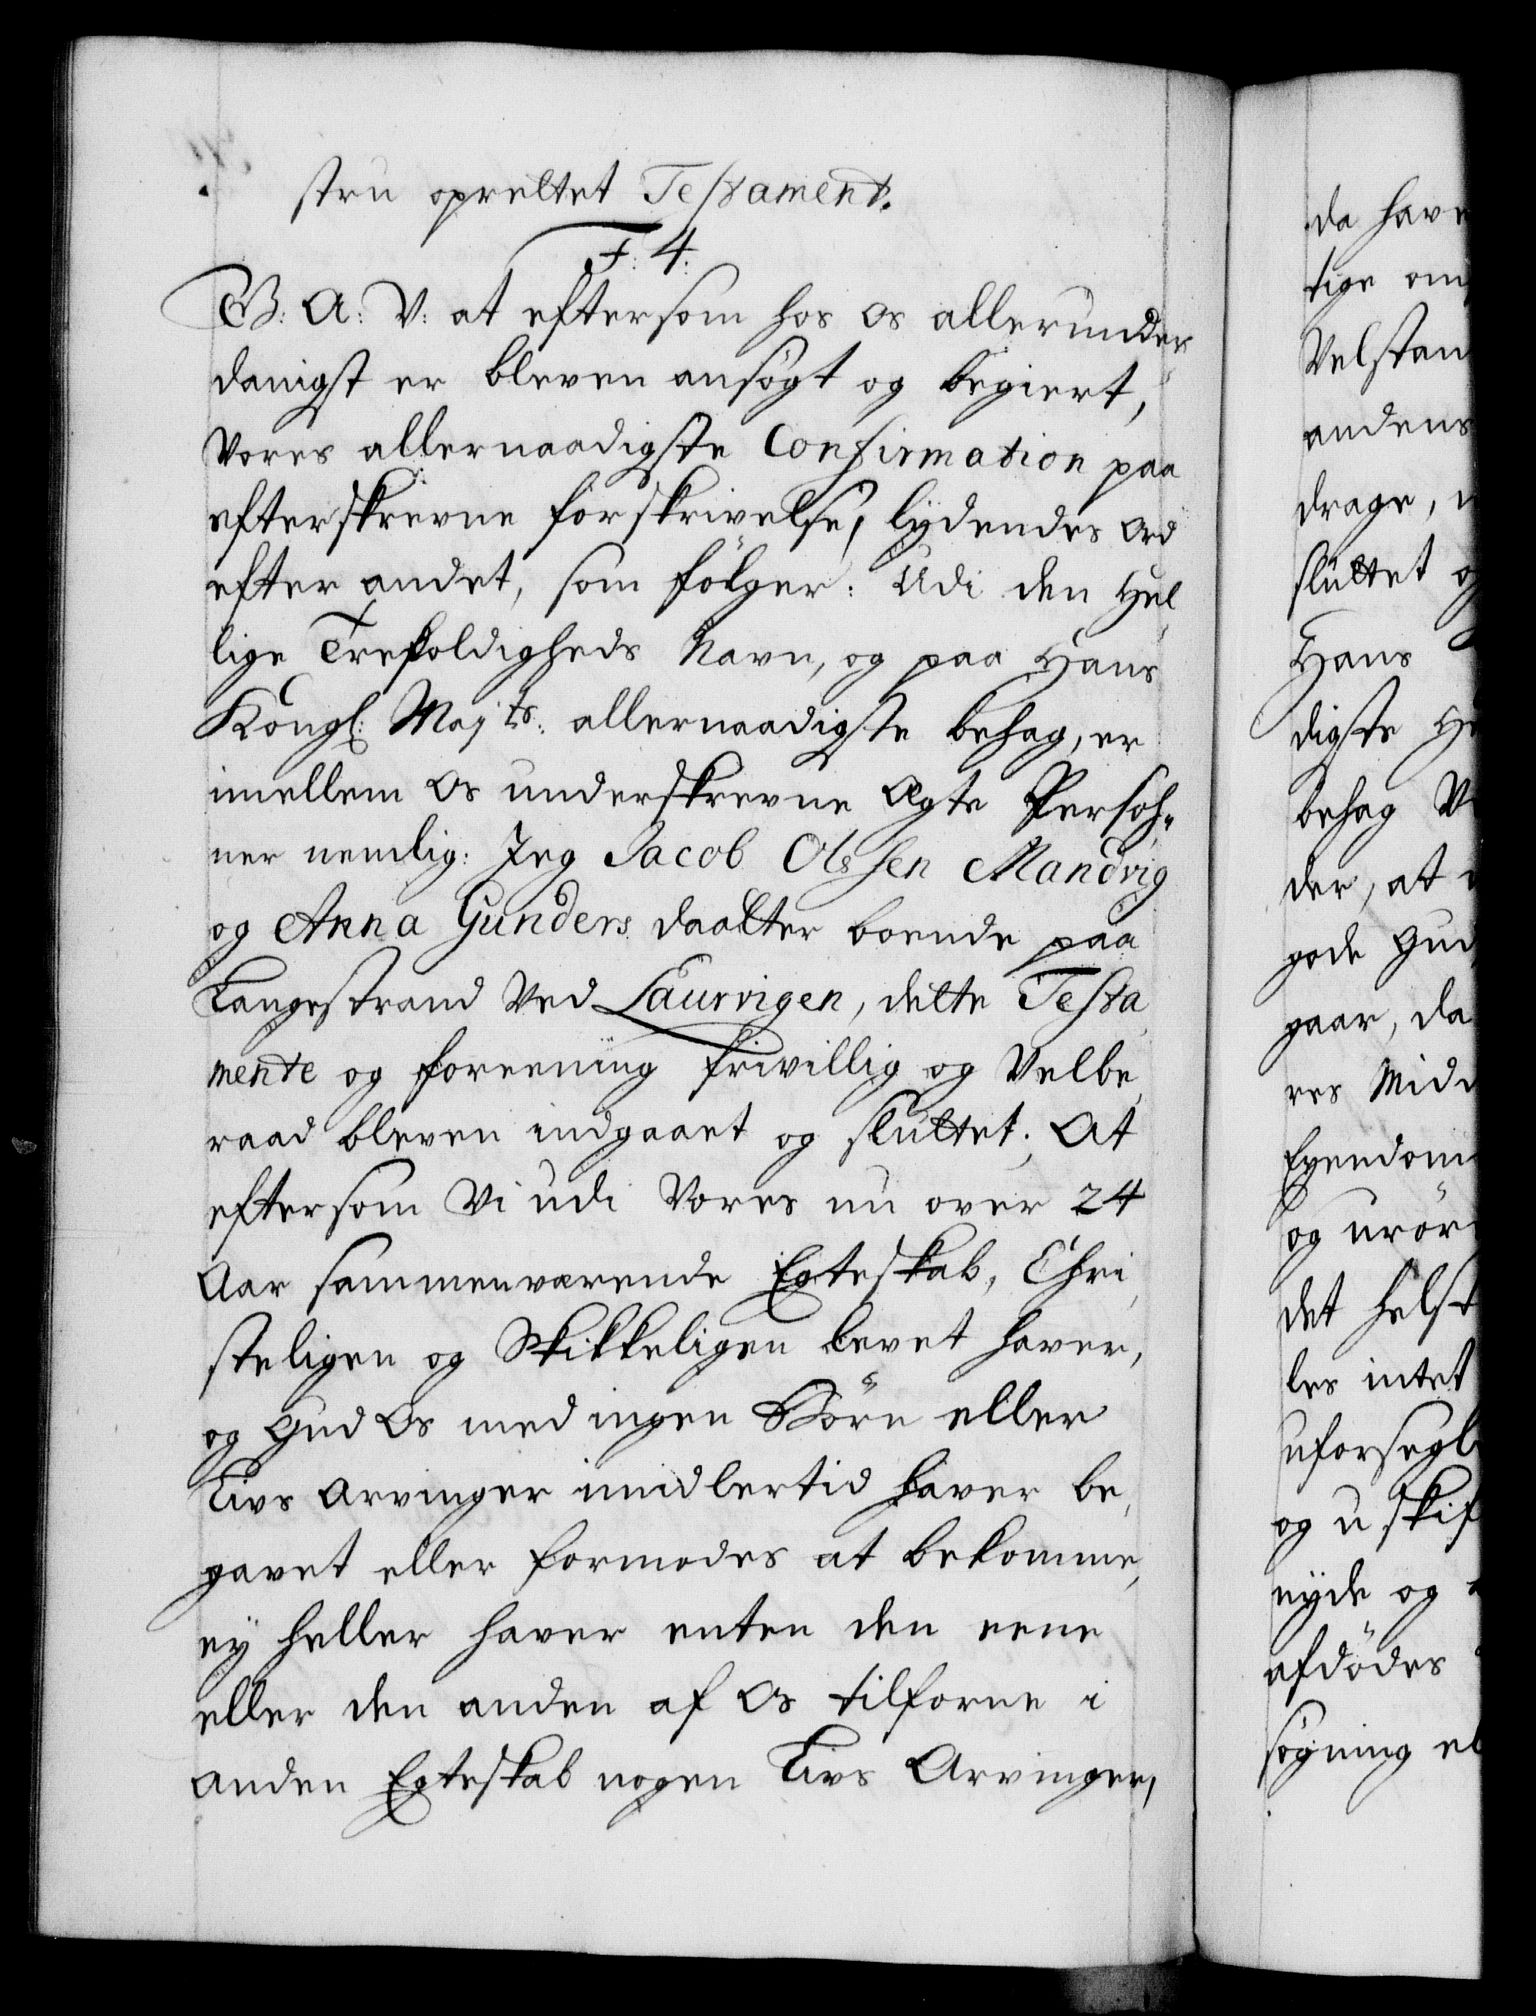 stru oprettet Testament.
F. 4.
G. A. V: at eftersom hos os allerunder,
danigst er bleven ansøgt og begiert,
Vores allernaadigste Confirmation paa
efterskrevne forskrivelse, lydendes ord
efter andet, som følger: Udi den Hel,
lige Trefoldigheds Navn, og paa Hans
Kongl: Maj:ts allernaadigste behag, er
imellem Os underskrevne Ægte Persoh,,
ner nemlig: Jeg Jacob Olssen Mandvig
og Anna Gunders daatter boende paa
Langestrand Ved Laurvigen, dette Testa,
mente og foreening frivillig og Velbe,
raad bleven indgaaet og sluttet. At
eftersom Vi udi Vores nu over 24
Aar sammenværende Egteskab, Chri,
steligen og Skikkeligen levet haver,
og Gud Os med ingen Börn eller
Livs Arvinger imidlertid haver be,
gavet eller formodes at bekomme,
ey heller haver enten den eene
eller den anden af Os tilforne i
anden Egteskab nogen Livs Arvinger,
da have
tige om
Velstan
andens
drage,
sluttet og
Hans
digste
behag
der, at
gode Gud
gaar, da
res Mid
Eyendom
og urör
det helst
les intet
uforsegl
og uskif
nyde og
afdödes
sögning el